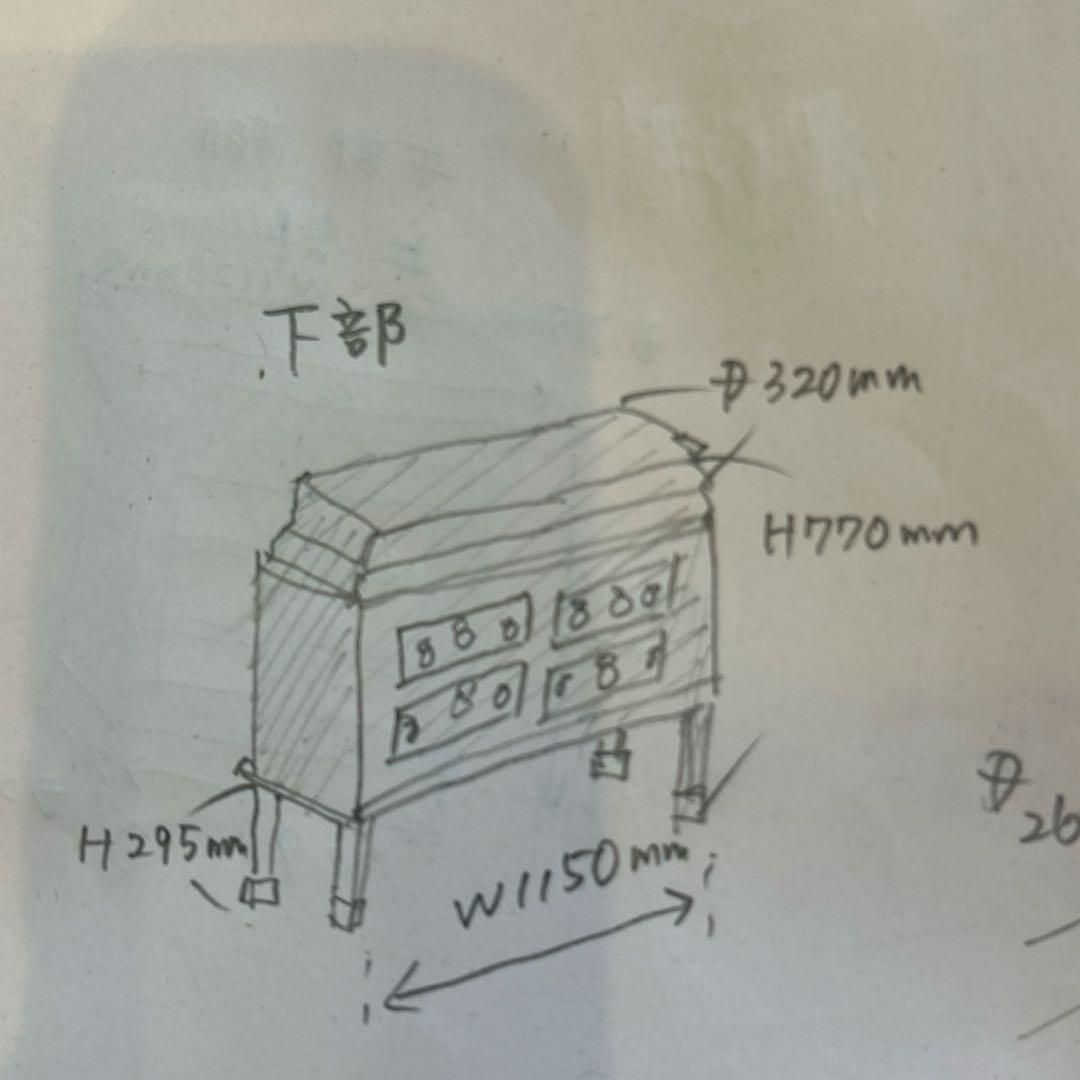 下部
D320mm
H770mm
H295mm
W1150mm
D
26